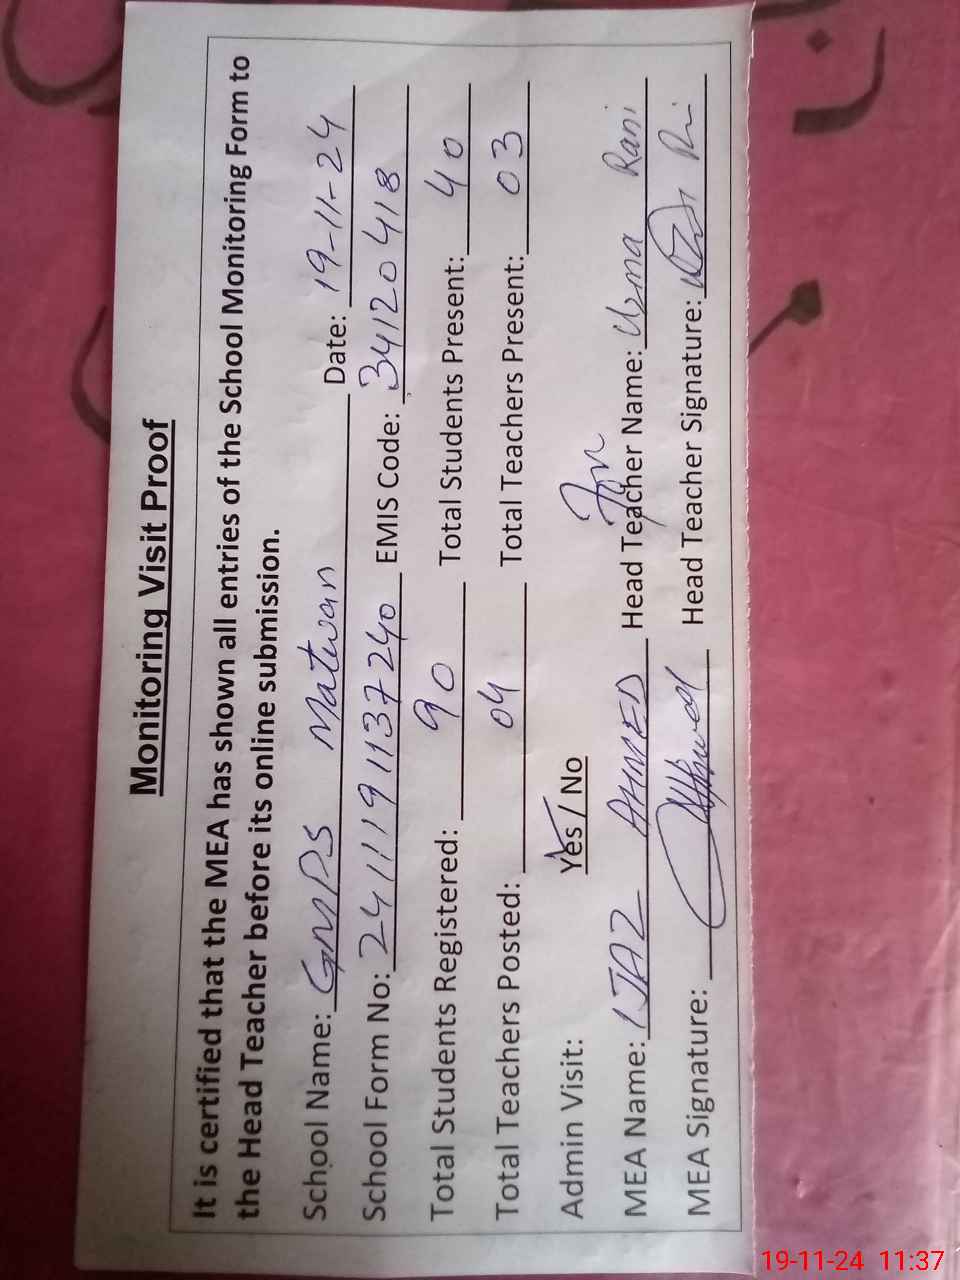 Monitoring Visit Proof
It is certified that the MEA has shown all entries of the School Monitoring Form to
the Head Teacher before its online submission.
School Name: GMPS Matwan Date: 19-11-24
School Form No: 2411191137240 EMIS Code: 34120418
Total Students Registered: 90 Total Students Present: 40
Total Teachers Posted: 04 Total Teachers Present: 03
Admin Visit: Yes / No
For
MEA Name: IJAZ AHMED Head Teacher Name: Uzma Rani
MEA Signature: Head Teacher Signature:
19-11-24 11:37